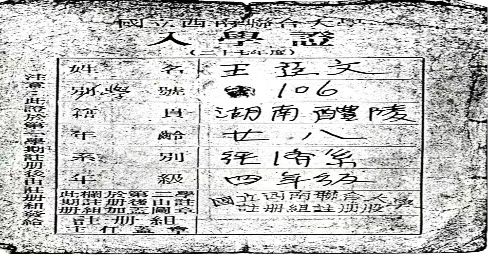 國立西南聯合大學
入學證
(二十七年度)
姓名 王 文
別學號 106
籍貫 湖南醴陵
年齡 廿八
系別 經濟系
年級 四年級
此欄於第二學
期註册後由註
册組加蓋圖章
國立西南聯合大學
註册組註册股
註册組
主任蓋章
注意:此證於第一學期註册後由註册組發給